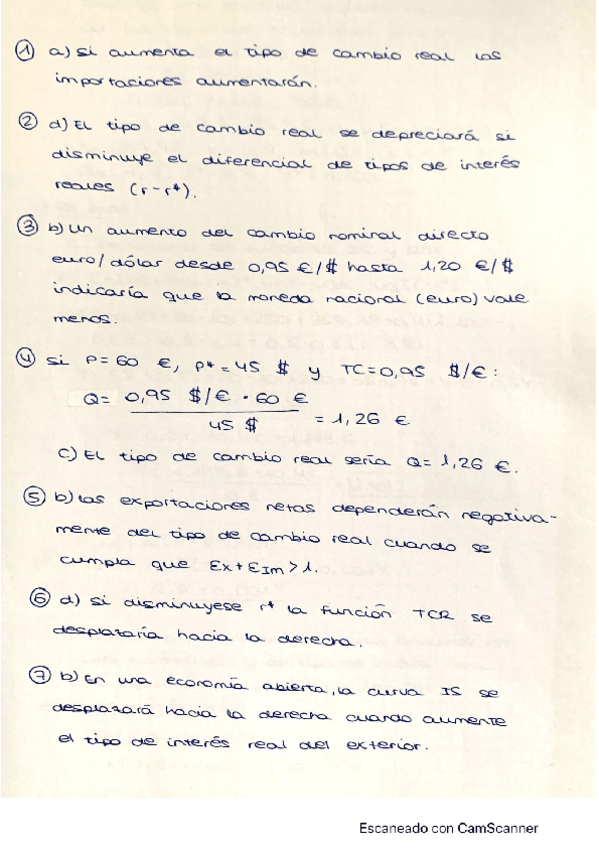 ① a) si aumenta el tipo de cambio real las
importaciones aumentarán.
② d) El tipo de cambio real se depreciará si
disminuye el diferencial de tipos de interés
reales (r-r*).
③ b) un aumento del cambio nominal directo
euro/dólar desde 0,95 €/$ hasta 1,20 €/$
indicaría que la moneda nacional (euro) vale
menos.
④ si P=60 €, P*=45 $ y TC=0,95 $/€:
Q= 0,95 $/€ · 60 €
45 $ = 1,26 €
c) El tipo de cambio real sería Q= 1,26 €.
⑤ b) las exportaciones netas dependerán negativa-
mente del tipo de cambio real cuando se
cumpla que Ɛx+ƐIm>1.
⑥ d) si disminuyese r* la función TCR se
desplazaría hacia la derecha.
⑦ b) En una economía abierta, la curva IS se
desplazará hacia la derecha cuando aumente
el tipo de interés real del exterior.
Escaneado con CamScanner